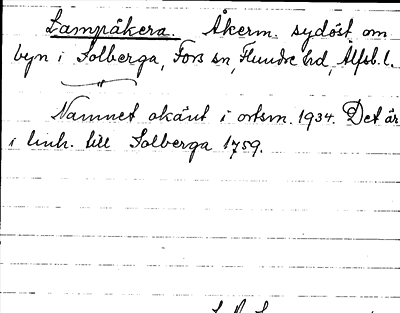 Lampåkera. Åkerm. sydöst om
byn i Solberga, Fors sn, Flundre hd, Älfsb. l.
Namnet okänt i ortsn. 1934. Det är
i link. till Solberga 1759.